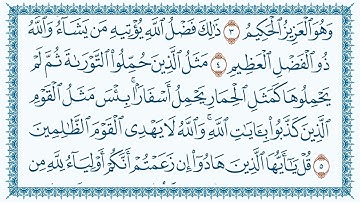 وَهُوَ ٱلْعَزِيزُ ٱلْحَكِيمُ ٣ ذَٰلِكَ فَضْلُ ٱللَّهِ يُؤْتِيهِ مَن يَشَآءُ وَٱللَّهُ
ذُو ٱلْفَضْلِ ٱلْعَظِيمِ ٤ مَثَلُ ٱلَّذِينَ حُمِّلُوا۟ ٱلتَّوْرَىٰةَ ثُمَّ لَمْ
يَحْمِلُوهَا كَمَثَلِ ٱلْحِمَارِ يَحْمِلُ أَسْفَارًۢا ۚ بِئْسَ مَثَلُ ٱلْقَوْمِ
ٱلَّذِينَ كَذَّبُوا۟ بِـَٔايَـٰتِ ٱللَّهِ ۚ وَٱللَّهُ لَا يَهْدِى ٱلْقَوْمَ ٱلظَّـٰلِمِينَ
٥ قُلْ يَـٰٓأَيُّهَا ٱلَّذِينَ هَادُوٓا۟ إِن زَعَمْتُمْ أَنَّكُمْ أَوْلِيَآءُ لِلَّهِ مِن